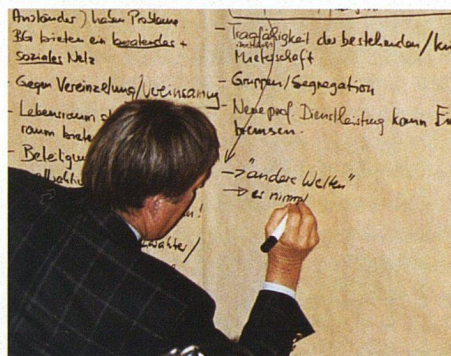 Ausländer) haben Probleme
BG bieten ein beratendes +
soziales Netz
- Gegen Vereinzelung/Vereinsamung
- Lebensraum
raum biete
- Beteiligun
- Tragfähigkeit der bestehenden/
Mieterschaft
- Gruppen/Segregation
- Neue prof. Dienstleistung kann
bremsen.
→ "andere Welten"
→ es nimmt